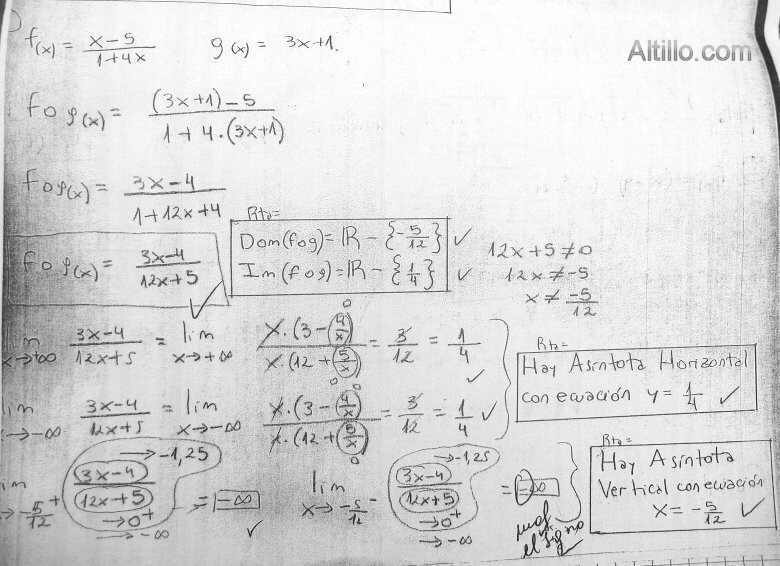 f(x) = x-5 / 1+4x    g(x) = 3x+1.
Altillo.com
f o g(x) = (3x+1)-5 / 1+4.(3x+1)
f o g(x) = 3x-4 / 1+12x+4
f o g(x) = 3x-4 / 12x+5 ✓
Rta=
Dom(fog) = ℝ - {-5/12} ✓
Im(fog) = ℝ - {1/4} ✓
12x+5 ≠ 0
12x ≠ -5
x ≠ -5/12
x→+∞ 3x-4 / 12x+5 = lim x→+∞ x.(3-4/x) / x.(12+5/x) = 3/12 = 1/4 ✓
lim →-∞ 3x-4 / 12x+5 = lim x→-∞ x.(3-4/x) / x.(12+5/x) = 3/12 = 1/4 ✓
Rta=
Hay Asíntota Horizontal
con ecuación y = 1/4 ✓
→ -5/12⁺ 3x-4 / 12x+5 = -∞ ✓
→ -1,25
→ 0⁺
→ -∞
lim x→ -5/12⁻ 3x-4 / 12x+5 = -∞
→ -1,25
→ 0⁺
→ -∞
el signo
Rta=
Hay Asíntota
Vertical con ecuación
x = -5/12 ✓